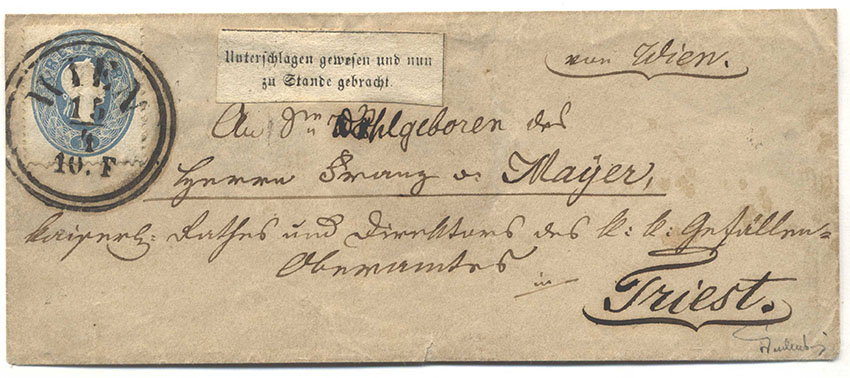 von Wien.
Unterschlagen gewesen und nun
zu Stande gebracht.
WIEN
15
4
10. F
An Sr Wohlgeboren des
Herrn Franz v. Mayer,
kaiserl: Rathes und Direktors des k: k: Gefällen=
Oberamtes
in
Triest.